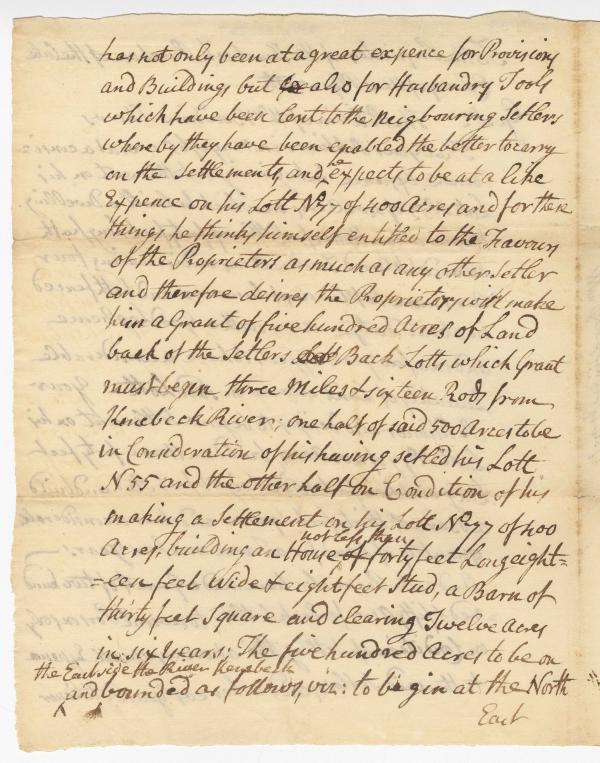 has not only been at a great expence for Provisions
and Buildings but also for Husbandry Tools
which have been lent to the Neigbouring Setlers
whereby they have been enabled the better to carry
on the Settlements, and he expects to be at a like
Expence on his Lott No. 77 of 400 Acres and for these
things he thinks himself entitled to the Favours
of the Proprieters as much as any other Setler
and therefore desires the Proprietors will make
him a Grant of five hundred Acres of Land
back of the Setlers Back Lotts which Grant
must begin three Miles & sixteen Rods from
Kenebeck River; one half of said 500 Acres to be
in Consideration of his having setled his Lott
N 55 and the other half on Condition of his
making a Settlement on his Lott No. 77 of 400
not less than
Acres, building an House of forty feet Long eight=
=een feet Wide & eight feet Stud, a Barn of
thirty feet Square and clearing Twelve Acres
in six Years; The five hundred Acres to be on
the East side the River Kenebeck
and bounded as follows, viz: to begin at the North
East